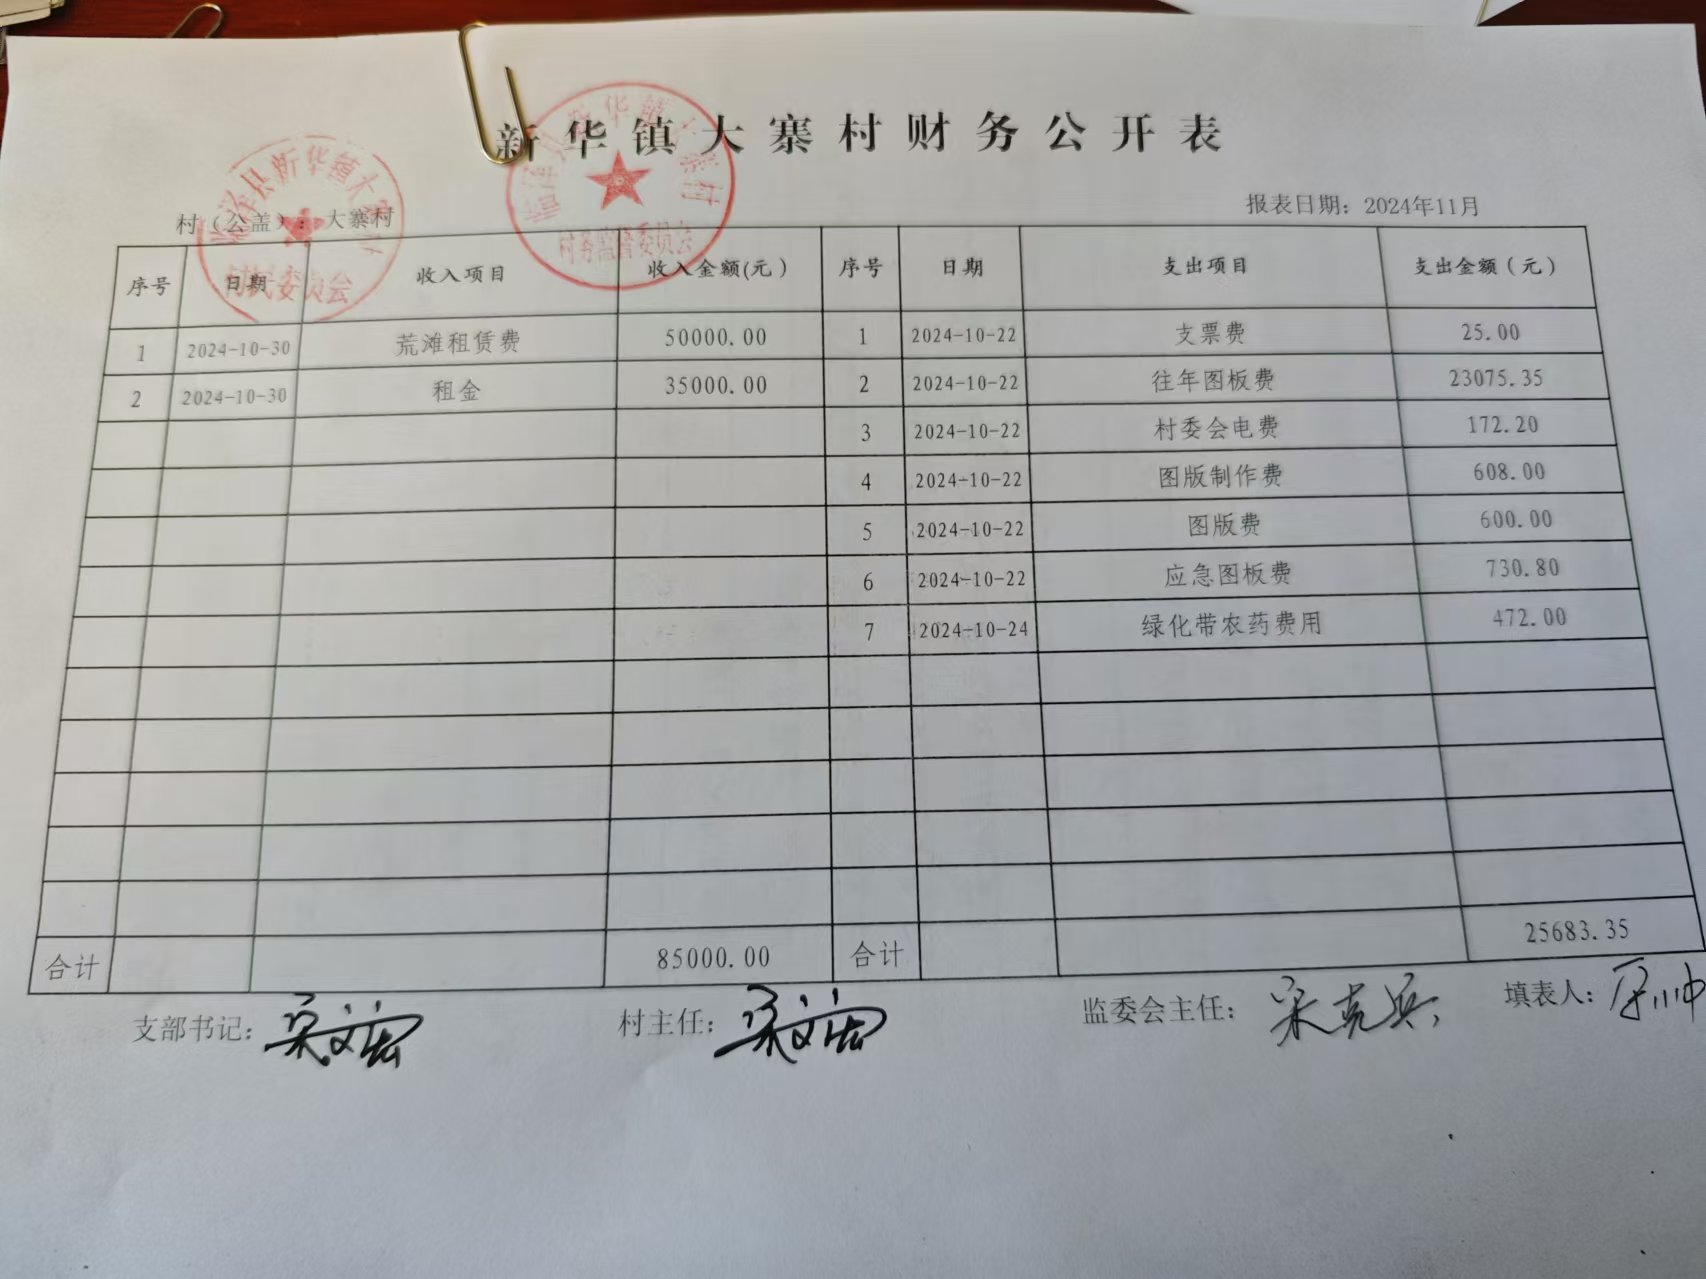 新华镇大寨村财务公开表
村（公盖）：大寨村 报表日期：2024年11月
临泽县新华镇大寨村
村民委员会
临泽县新华镇大寨村
村务监督委员会
序号 日期 收入项目 收入金额(元） 序号 日期 支出项目 支出金额（元）
1 2024-10-30 荒滩租赁费 50000.00 1 2024-10-22 支票费 25.00
2 2024-10-30 租金 35000.00 2 2024-10-22 往年图板费 23075.35
3 2024-10-22 村委会电费 172.20
4 2024-10-22 图版制作费 608.00
5 2024-10-22 图版费 600.00
6 2024-10-22 应急图板费 730.80
7 2024-10-24 绿化带农药费用 472.00
合计 85000.00 合计 25683.35
支部书记： 村主任： 监委会主任：宋克兵 填表人：